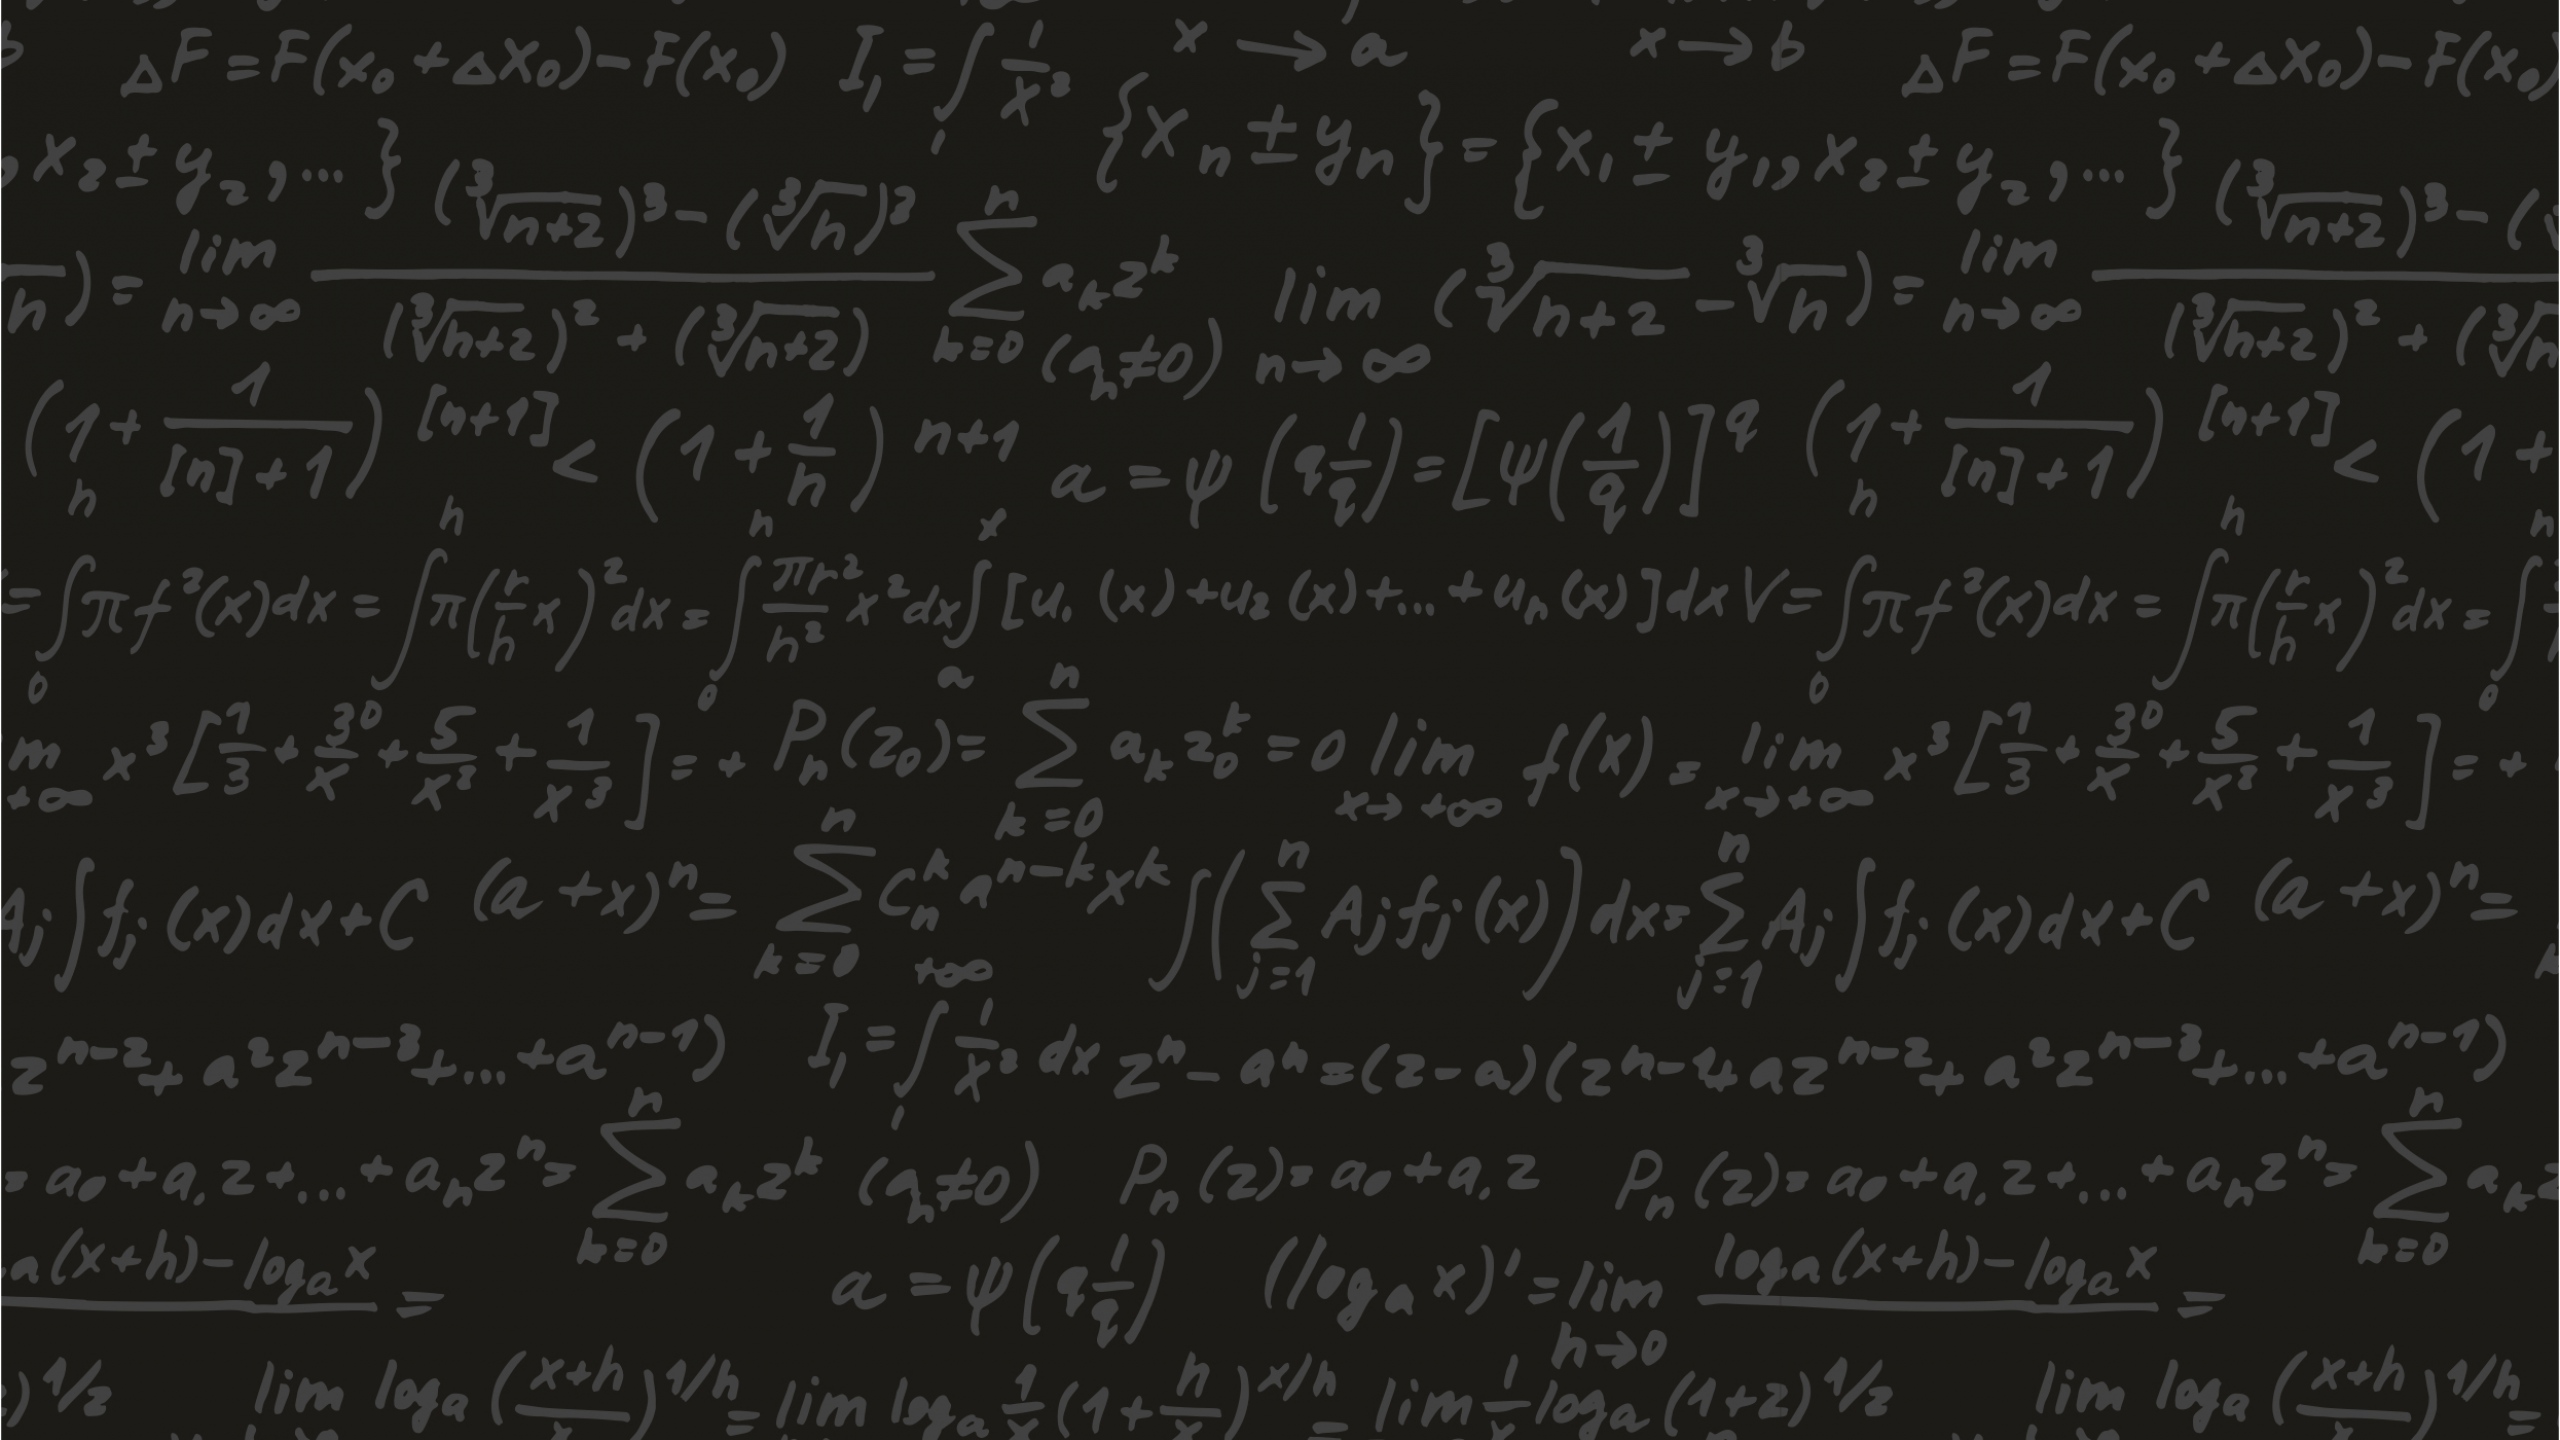 ΔF = F(x₀ + Δx₀) – F(x₀) I₁ = ∫₁ 1/x² x → a x → b ΔF = F(x₀ + Δx₀) – F(x₀)
, x₂ ± y₂, ... } {xₙ ± yₙ} = {x₁ ± y₁, x₂ ± y₂, ... }
n) = lim n→∞ ((∛n+2)³ – (∛n)³) / ((∛n+2)² + (∛n+2)) ∑ k=0 n aₖzᵏ (aₙ≠0) lim n→∞ (∛n+2 – ∛n) = lim n→∞ ((∛n+2)³ – (
(1 + 1/([n]+1))^[n+1] < (1 + 1/n)^n+1 a = ψ(q 1/q) = [ψ(1/q)]^q (1 + 1/([n]+1))^[n+1] < (1 +
= ∫₀ʰ πf²(x)dx = ∫ʰ π(r/h x)²dx = ∫₀ʰ πr²/h² x²dx ∫ₐˣ [u₁(x) + u₂(x) + ... + uₙ(x)]dx V = ∫₀ʰ πf²(x)dx = ∫ʰ π(r/h x)²dx = ∫₀
m +∞ x³[1/3 + 30/x + 5/x² + 1/x³] = + Pₙ(z₀) = ∑ k=0 n aₖz₀ᵏ = 0 lim x→+∞ f(x) = lim x→+∞ x³[1/3 + 30/x + 5/x² + 1/x³] = +
Aⱼ∫fⱼ(x)dx + C (a + x)ⁿ = ∑ k=0 n Cₙᵏ aⁿ⁻ᵏxᵏ ∫(∑ j=1 n Aⱼfⱼ(x))dx = ∑ j=1 n Aⱼ∫fⱼ(x)dx + C (a + x)ⁿ =
zⁿ⁻² + a²zⁿ⁻³ + ... + aⁿ⁻¹) I₁ = ∫₁^+∞ 1/x² dx zⁿ – aⁿ = (z – a)(zⁿ⁻¹ + azⁿ⁻² + a²zⁿ⁻³ + ... + aⁿ⁻¹)
= a₀ + a₁z + ... + aₙzⁿ = ∑ k=0 n aₖzᵏ (aₙ≠0) Pₙ(z) = a₀ + a₁z Pₙ(z) = a₀ + a₁z + ... + aₙzⁿ = ∑ k=0 n aₖz
a(x+h) – logₐx = a = ψ(q 1/q) (logₐx)' = lim h→0 (logₐ(x+h) – logₐx) / =
)^1/z lim logₐ((x+h)/x)^1/h = lim logₐ 1/x (1 + h/x)^x/h = lim 1/x logₐ(1+z)^1/z lim logₐ((x+h)/x)^1/h =